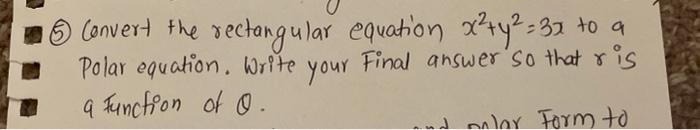 ⑤ Convert the rectangular equation x²+y²=3x to a
Polar equation. Write your Final answer so that r is
a function of θ.
and polar Form to